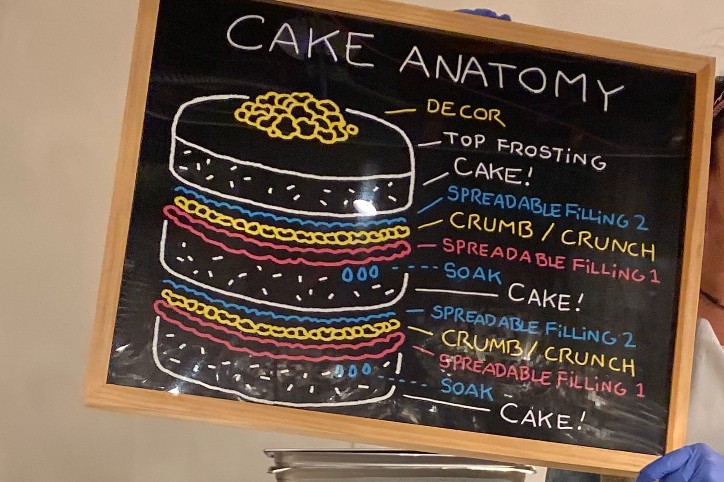 CAKE ANATOMY
DECOR
TOP FROSTING
CAKE!
SPREADABLE FilliNG 2
CRUMB / CRUNCH
SPREADABLE FilliNG 1
SOAK
CAKE!
SPREADABLE FilliNG 2
CRUMB / CRUNCH
SPREADABLE FilliNG 1
SOAK
CAKE!